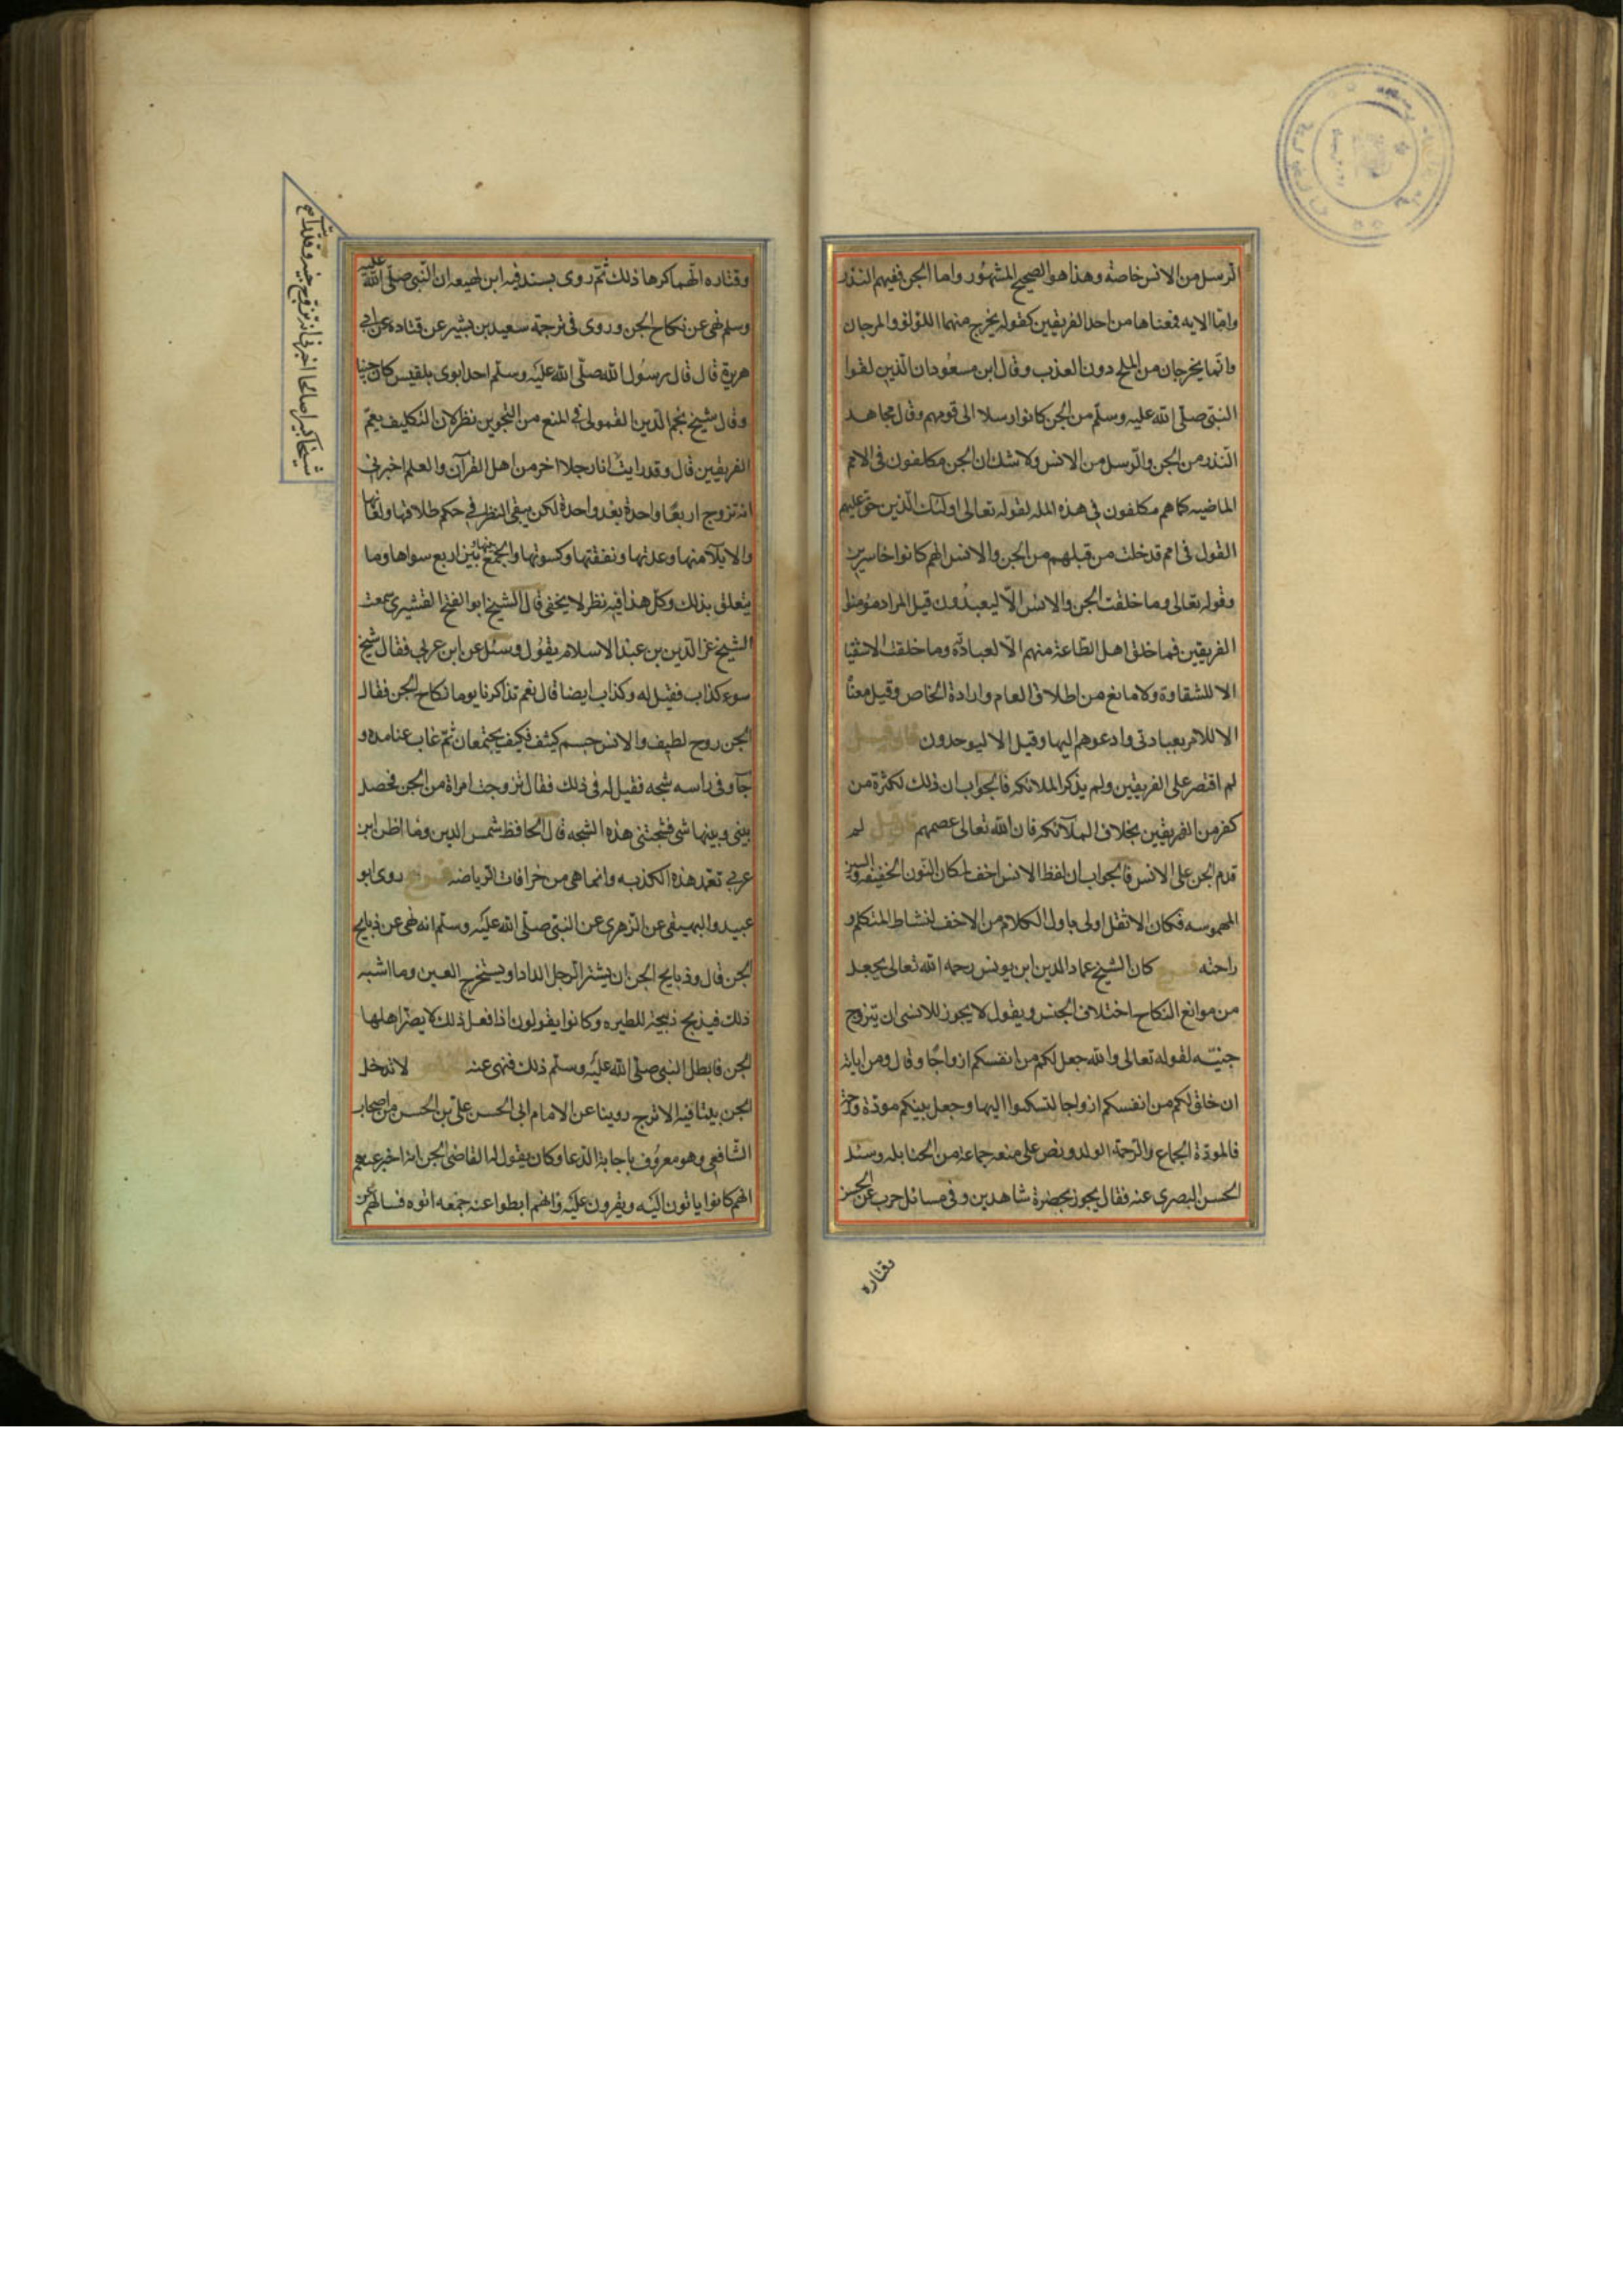 الرسل من الانس خاصة وهذا هو الصحيح المشهور واما الجن ففيهم النذر
واما الايه فمعناها من احد الفريقين كقوله يخرج منهما اللؤلؤ والمرجان
وانما يخرجان من الملح دون العذب وقال ابن مسعود ان الذين لقوا
النبي صلى الله عليه وسلم من الجن كانوا رسلا الى قومهم وقال مجاهد
النذر من الجن والرسل من الانس ولا شك ان الجن مكلفون في الامم
الماضيه كما هم مكلفون في هذه المله لقوله تعالى اولئك الذين حق عليهم
القول في امم قد خلت من قبلهم من الجن والانس انهم كانوا خاسرين
وقوله تعالى وما خلقت الجن والانس الا ليعبدون قيل المراد مؤمنوا
الفريقين فما خلق اهل الطاعة منهم الا لعبادته وما خلقت الاشقيا
الا للشقاوة ولا مانع من اطلاق العام وارادة الخاص وقيل معناه
الا للامر بعبادتى وادعوهم اليها وقيل الا ليوحدون فان قيل
لم اقتصر على الفريقين ولم يذكر الملائكه فالجواب ان ذلك لكثرة من
كفر من الفريقين بخلاف الملآئكه فان الله تعالى عصمهم فان قيل لم
قدم الجن على الانس فالجواب ان لفظ الانس اخف لمكان النون الخفيفه والسين
المهموسه فكان الاثقل اولى باول الكلام من الاخف لنشاط المتكلم و
راحته فرع كان الشيخ عماد الدين ابن يونس رحمه الله تعالى يجعل
من موانع النكاح اختلاف الجنس ويقول لا يجوز للانسى ان يتزوج
جنيّه لقوله تعالى والله جعل لكم من انفسكم ازواجًا وقال ومن اياته
ان خلق لكم من انفسكم ازواجا لتسكنوا اليها وجعل بينكم مودة ورحمة
فالمودة الجماع والرحمة الولد ونص على منعه جماعة من الحنابله وسئل
الحسن البصرى عنه فقال يجوز بحضرة شاهدين وفي مسائل حرب عن الحسن
وقتاده
وقتاده انهما كرها ذلك ثم روى بسند فيه ابن لهيعه ان النبي صلى الله عليه
وسلم نهى عن نكاح الجن وروى في ترجمة سعيد بن بشير عن قتاده عن ابي
هريرة قال قال رسول الله صلى الله عليه وسلم احد ابوى بلقيس كان جنيا
وقال شيخ نجم الدين القمولي في المنع من التجويز نظر لان التكليف يعم
الفريقين قال وقد رايت انا رجلا اخر من اهل القرآن والعلم اخبرني
انه تزوج اربعًا واحدة بعد واحدة لكن يبقى النظر في حكم طلاقها ولعانها
والايلآ منها وعدتها ونفقتها وكسوتها والجمع بينها وبين اربع سواها وما
يتعلق بذلك وكل هذا فيه نظر لا يخفى قال الشيخ ابو الفتح القشيرى سمعت
الشيخ عز الدين بن عبد الاسلام يقول وسئل عن ابن عربي فقال شيخ
سوء كذاب فقيل له وكذاب ايضا قال نعم تذاكرنا يوما نكاح الجن فقال
الجن روح لطيف والانس جسم كثيف فكيف يجتمعان ثم غاب عنا مده و
جآ وفى راسه شجه فقيل له في ذلك فقال تزوجت امراة من الجن فحصل
بينى وبينها شى فشجتنى هذه الشجه قال الحافظ شمس الدين وما اظن ابن
عربي تعمد هذه الكذبه وانما هى من خرافات الرياضه فرع روى ابو
عبيد والبيهقى عن الزهرى عن النبي صلى الله عليه وسلم انه نهى عن ذبايح
الجن قال وذبايح الجن ان يشترا الرجل الدار او يستخرج العين وما اشبه
ذلك فيذبح ذبيحة للطيره وكانوا يقولون اذا فعل ذلك لا يضر اهلها
الجن فابطل النبي صلى الله عليه وسلم ذلك فنهى عنه لا تدخل
الجن بيتا فيه الاترج روينا عن الامام ابى الحسن على بن الحسن من اصحاب
الشافعي وهو معروف باجابة الدعا وكان يقول له القاضى الجن انه اخبر عنهم
انهم كانوا ياتون اليه ويقرون عليه وانهم ابطوا عنه جمعه اتوه فسالهم عن
شيخا كبيرا صالحا اخبرني انه تزوج جنيه وقد رايت